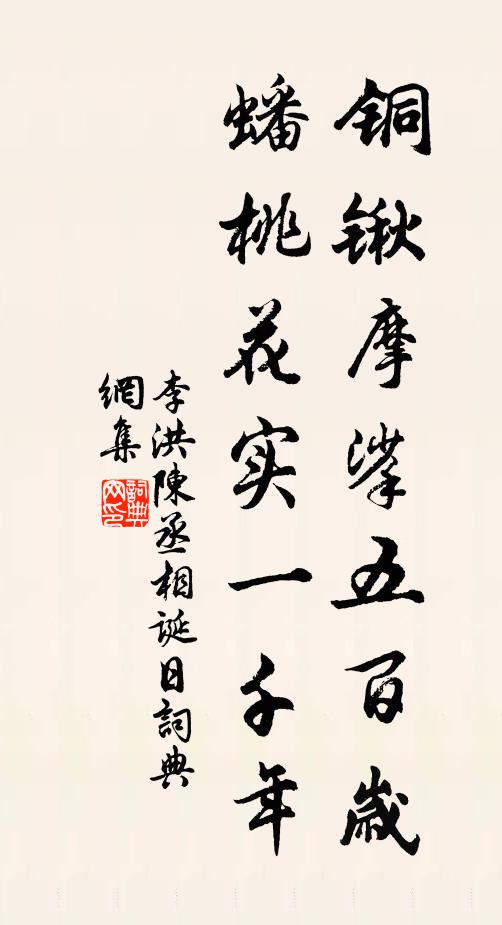 铜锹摩挲五百歲
蟠桃花实一千年
李洪陳丞相誕日詞典
網集
詞典網印